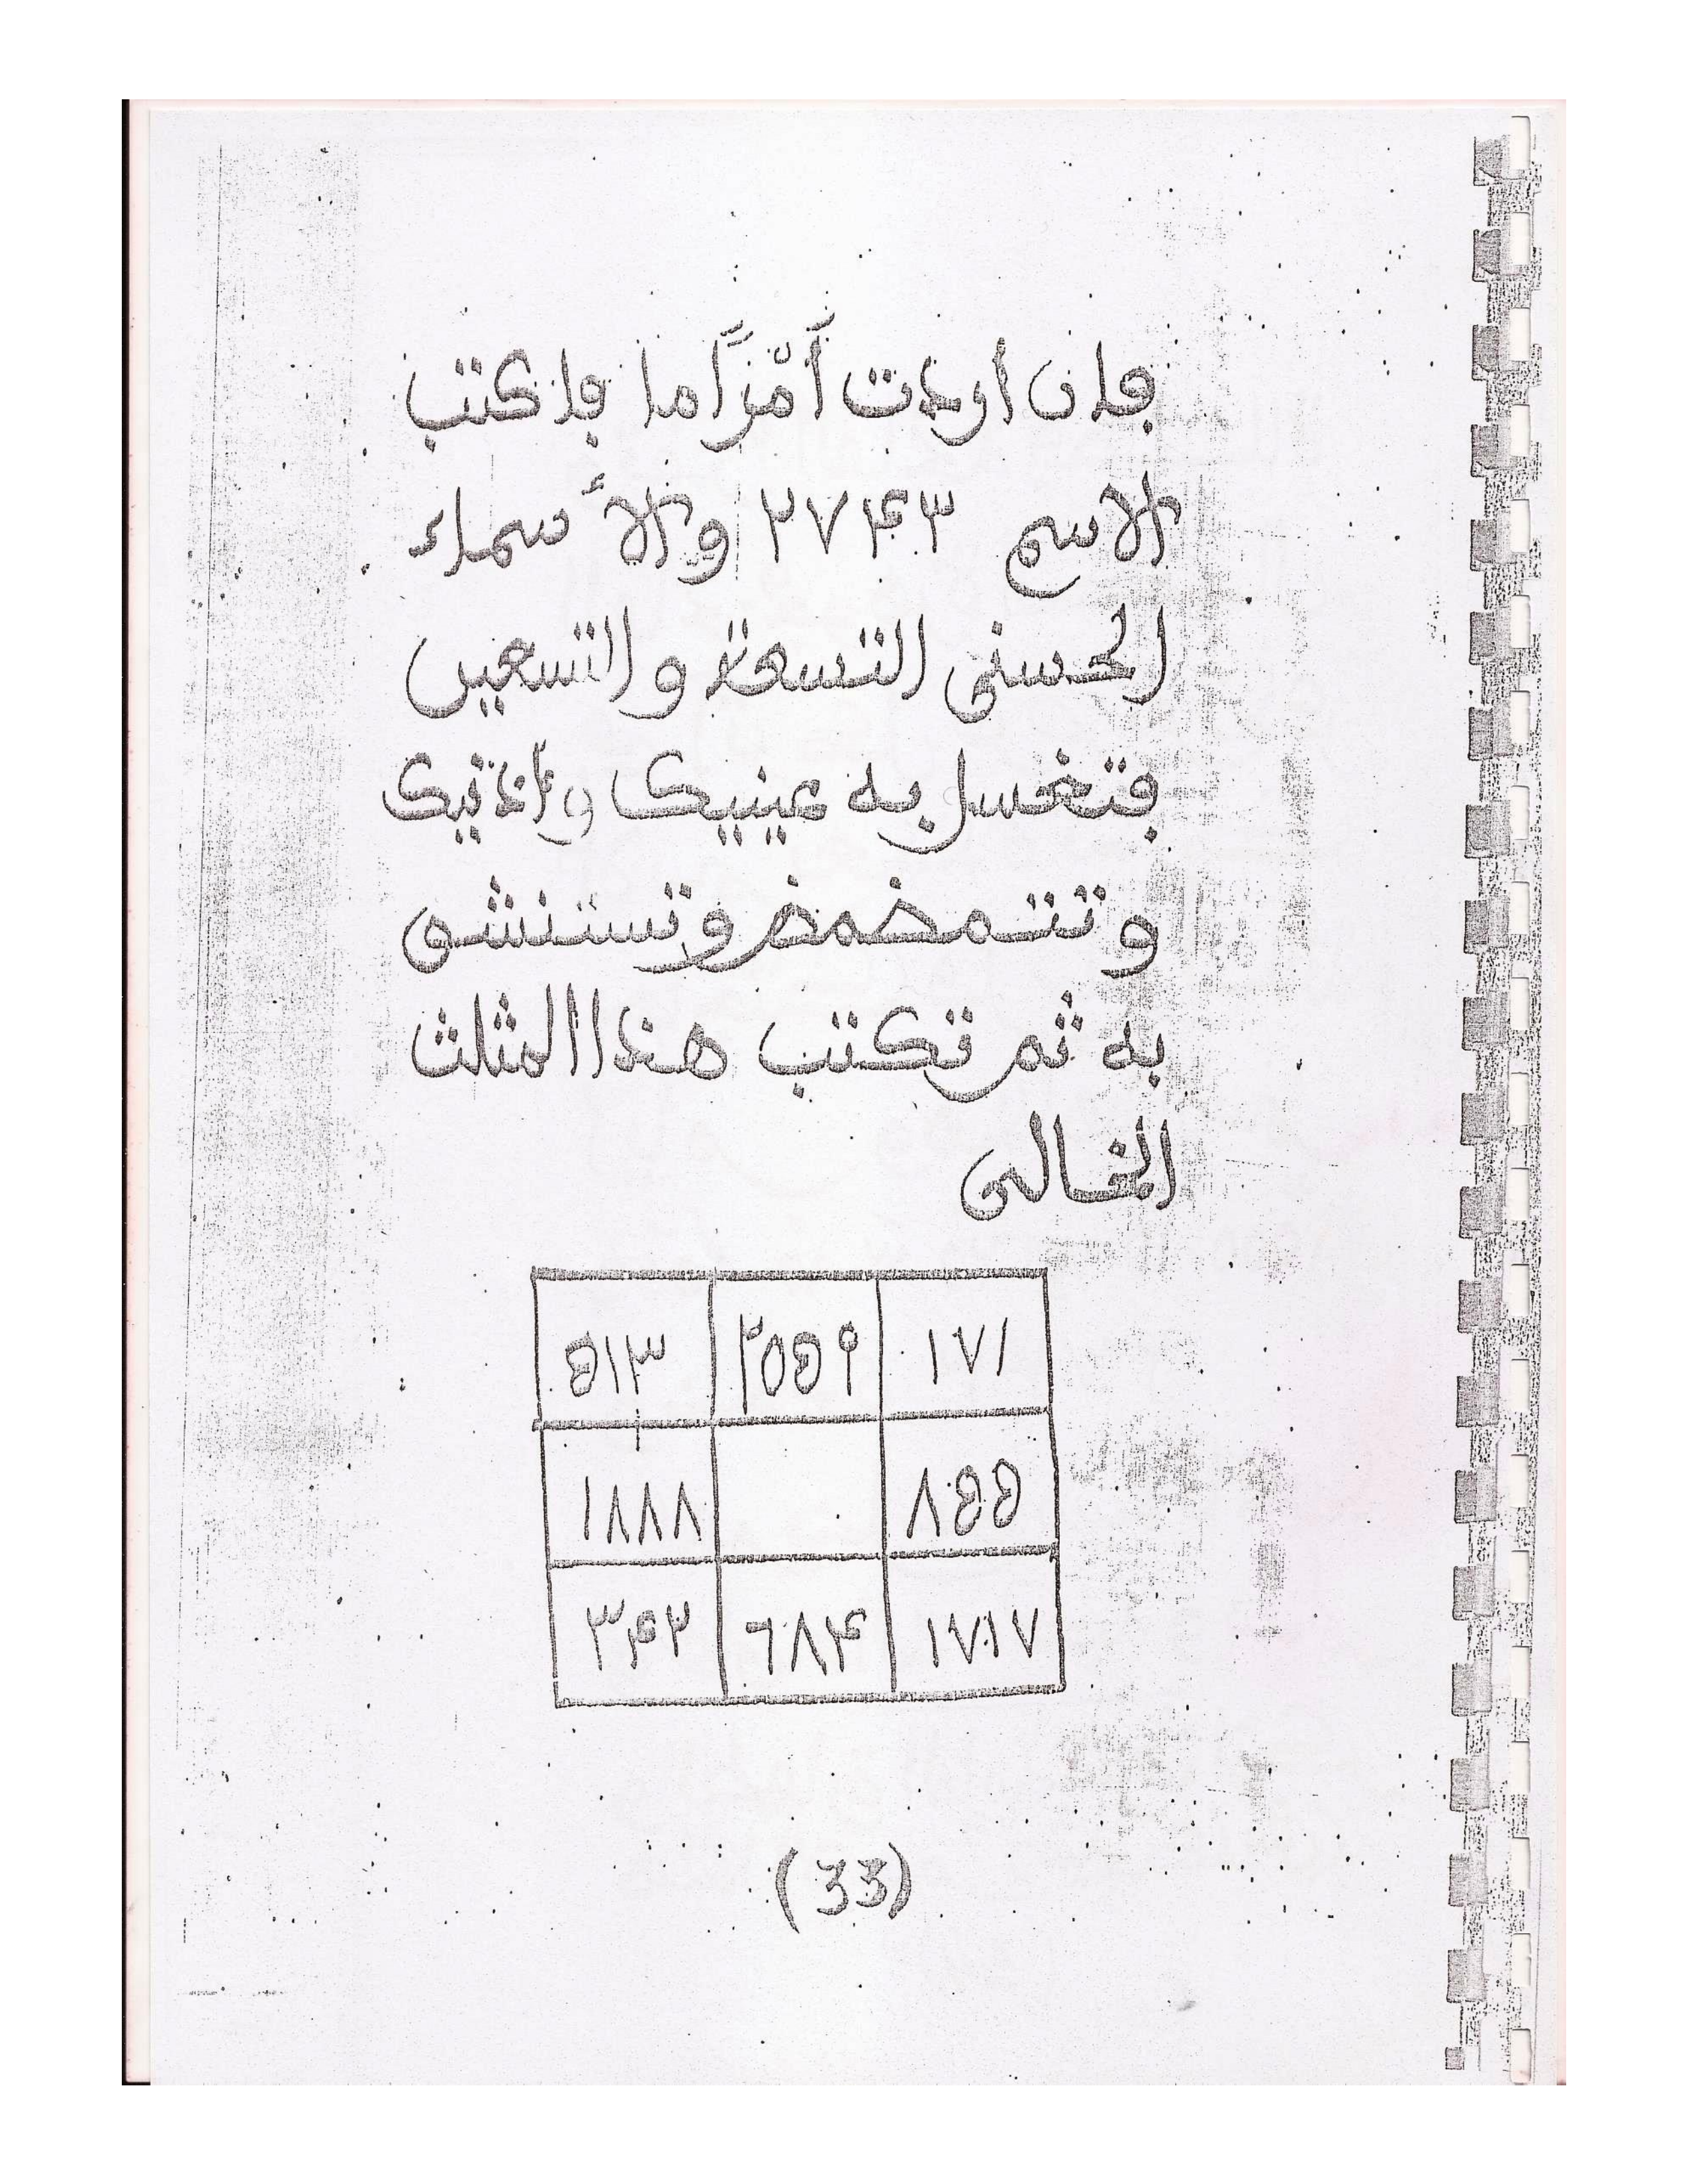 فان اردت أمرًا ما فاكتب
الاسم ٢٧٤٣ والأسماء
الحسنى التسعة والتسعين
فتغسل به عينيك واذنيك
وتتمضمض وتستنشق
به ثم تكتب هذا المثلث
الخالى
١٧١ ٢٠٥٩ ٥١٣
٨٥٥ ١٨٨٨
١٧١٧ ٦٨٤ ٣٤٢
(33)